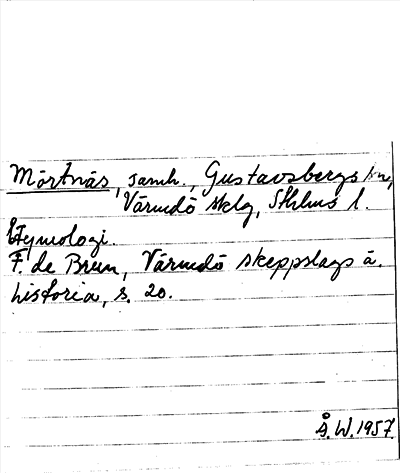 Mörtnäs, samh., Gustavsbergs kn,
Värmdö sklg, Sthlms l.
Etymologi.
F. de Brun, Värmdö skeppslags ä.
historia, s. 20.
Å.W. 1957.